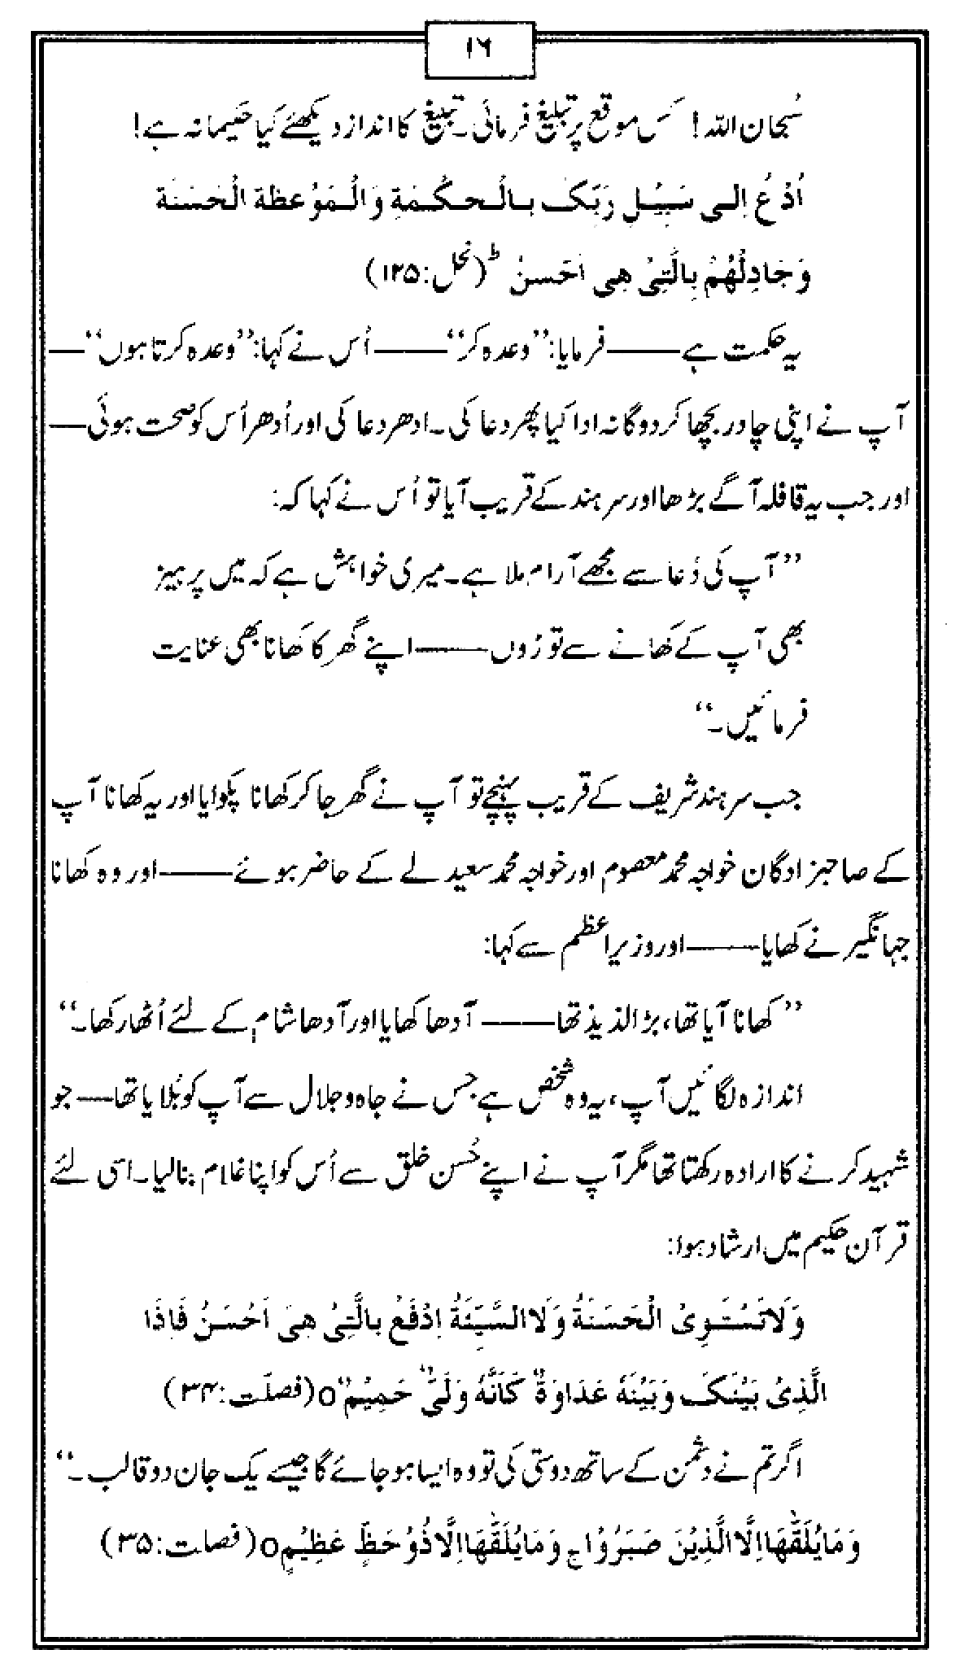 ۱۶
سُبحان اللہ! کس موقع پر تبلیغ فرمائی۔ تبلیغ کا انداز دیکھئے کیا حکیمانہ ہے!
اُدْعُ اِلٰی سَبِیْلِ رَبِّکَ بِالْحِکْمَةِ وَالْمَوْعِظَةِ الْحَسَنَةِ
وَجَادِلْهُمْ بِالَّتِیْ هِیَ اَحْسَنُ ؕ (نحل:۱۲۵)
یہ حکمت ہے —— فرمایا: ”وعدہ کر“ —— اُس نے کہا: ”وعدہ کرتا ہوں“ —
آپ نے اپنی چادر بچھا کر دوگانہ ادا کیا پھر دعا کی۔ ادھر دعا کی اور اُدھر اُس کو صحت ہوئی —
اور جب یہ قافلہ آگے بڑھا اور سرہند کے قریب آیا تو اُس نے کہا کہ:
”آپ کی دُعا سے مجھے آرام ملا ہے۔ میری خواہش ہے کہ میں پرہیز
بھی آپ کے کھانے سے توڑوں —— اپنے گھر کا کھانا بھی عنایت
فرمائیں۔“
جب سرہند شریف کے قریب پہنچے تو آپ نے گھر جا کر کھانا پکوایا اور یہ کھانا آپ
کے صاحبزادگان خواجہ محمد معصوم اور خواجہ محمد سعید لے کے حاضر ہوئے —— اور وہ کھانا
جہانگیر نے کھایا —— اور وزیر اعظم سے کہا:
”کھانا آیا تھا، بڑا لذیذ تھا —— آدھا کھایا اور آدھا شام کے لئے اُٹھا رکھا۔“
اندازہ لگائیں آپ، یہ وہ شخص ہے جس نے جاہ و جلال سے آپ کو بُلایا تھا — جو
شہید کرنے کا ارادہ رکھتا تھا مگر آپ نے اپنے حُسن خلق سے اُس کو اپنا غلام بنا لیا۔ اسی لئے
قرآن حکیم میں ارشاد ہوا:
وَلَا تَسْتَوِی الْحَسَنَةُ وَلَا السَّیِّئَةُ اِدْفَعْ بِالَّتِیْ هِیَ اَحْسَنُ فَاِذَا
الَّذِیْ بَیْنَکَ وَبَیْنَهٗ عَدَاوَةٌ کَاَنَّهٗ وَلِیٌّ حَمِیْمٌ o (فصلّت:۳۴)
اگر تم نے دشمن کے ساتھ دوستی کی تو وہ ایسا ہو جائے گا جیسے یک جان دو قالب۔“
وَمَا یُلَقّٰهَا اِلَّا الَّذِیْنَ صَبَرُوْا ج وَمَا یُلَقّٰهَا اِلَّا ذُوْ حَظٍّ عَظِیْمٍ o (فصلت:۳۵)